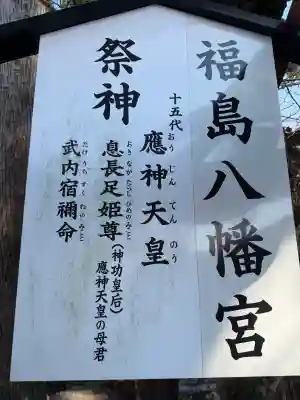 福島八幡宮
祭神
十五代
應神天皇
おうじんてんのう
息長足姫尊(神功皇后)
おきながたらしひめのみこと
應神天皇の母君
武内宿禰命
たけうちすくねのみこと